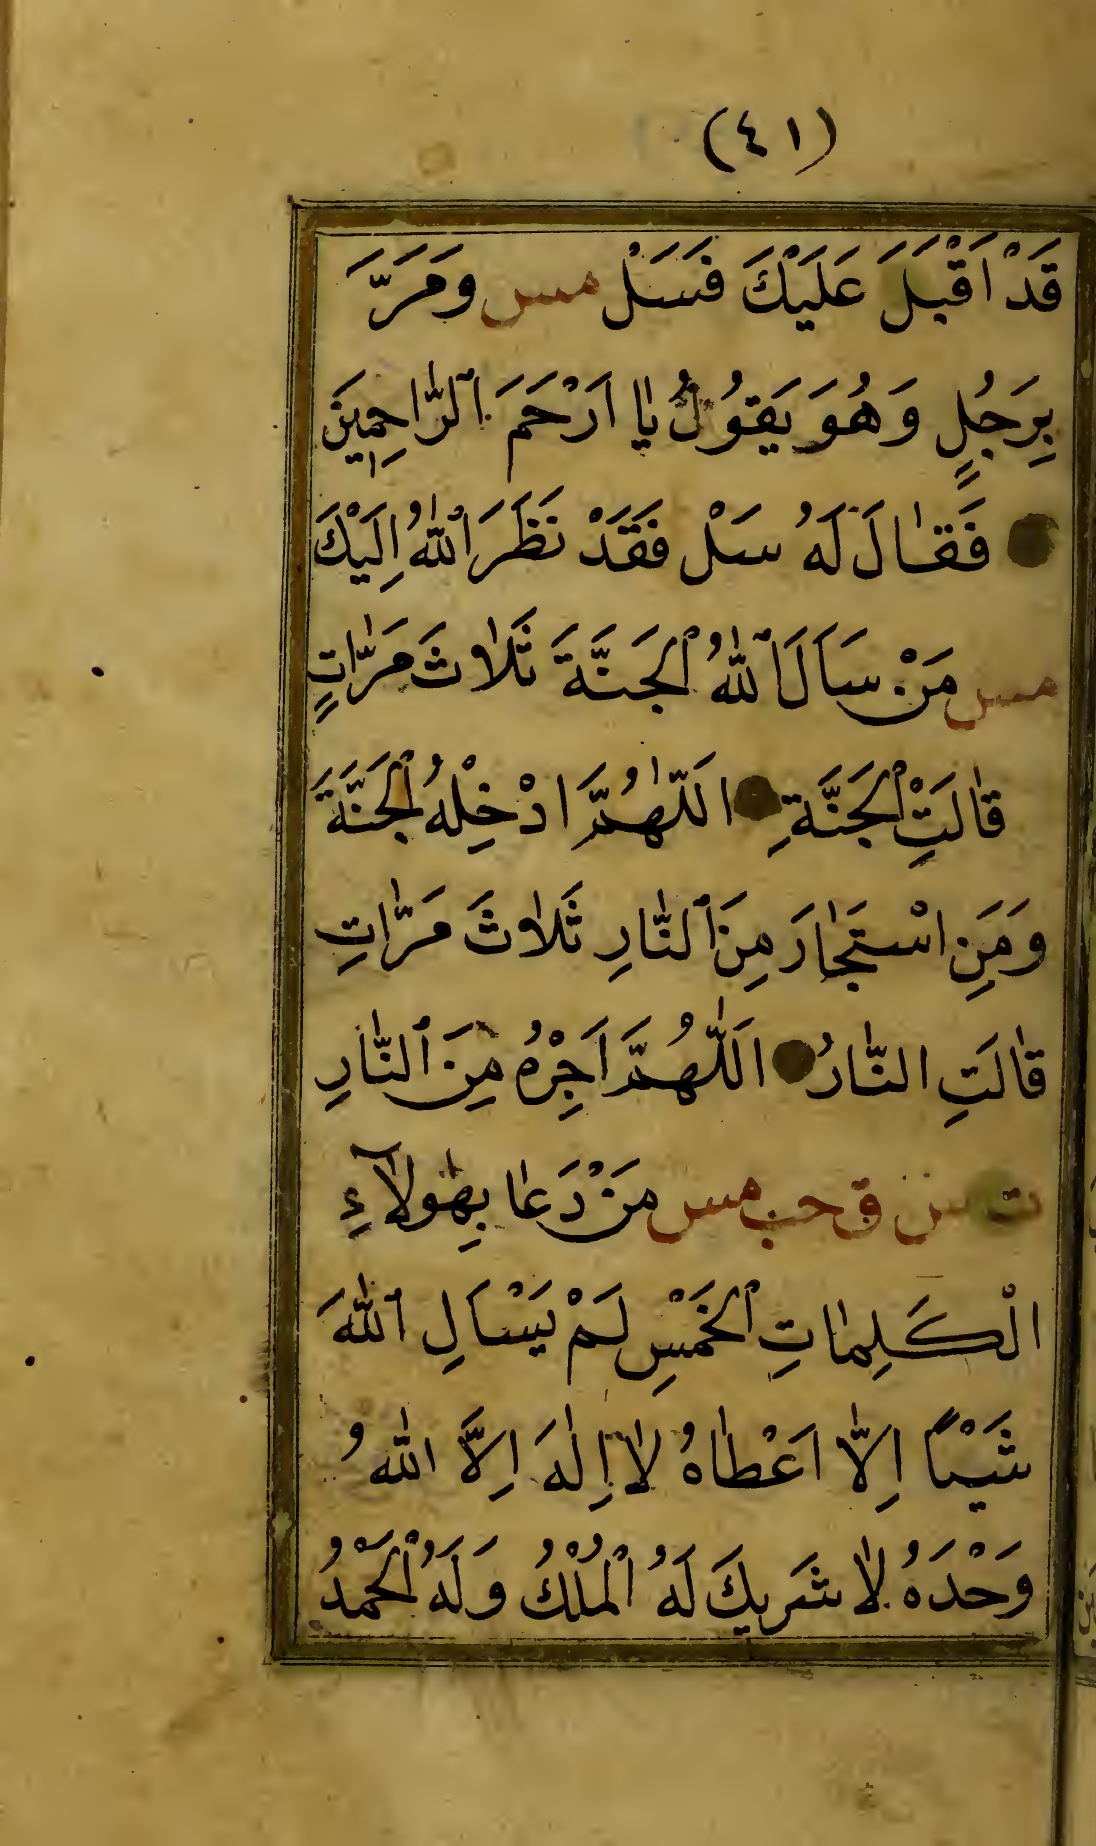 (٤١)
قَدْ اَقْبَلَ عَلَيْكَ فَسَلْ مس وَمَرَّ
بِرَجُلٍ وَهُوَ يَقُولُ يَا اَرْحَمَ الرَّاحِمِينَ
فَقَالَ لَهُ سَلْ فَقَدْ نَظَرَ اللّٰهُ اِلَيْكَ
مس مَنْ سَاَلَ اللّٰهُ الْجَنَّةَ ثَلَاثَ مَرَّاتٍ
قَالَتِ الْجَنَّةِ اَللّٰهُمَّ ادْخِلْهُ الْجَنَّةَ
وَمَنِ اسْتَجَارَ مِنَ النَّارِ ثَلَاثَ مَرَّاتِ
قَالَتِ النَّارُ اَللّٰهُمَّ اَجِرْهُ مِنَ النَّارِ
ت س ق حب مس مَنْ دَعَا بِهٰولَآءِ
الْكَلِمَاتِ الْخَمْسِ لَمْ يَسْاَلِ اللّٰهَ
شَيْـًٔا اِلَّا اَعْطَاهُ لَا اِلٰهَ اِلَّا اللّٰهُ
وَحْدَهُ لَا شَرِيكَ لَهُ الْمُلْكُ وَلَهُ الْحَمْدُ